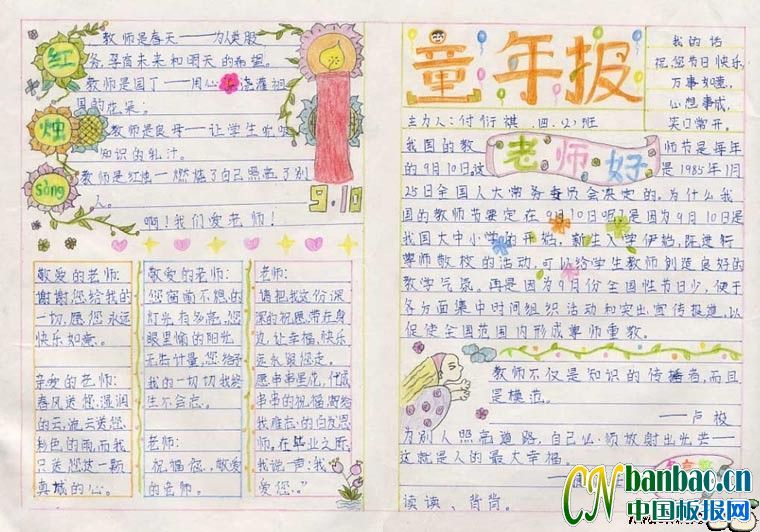 教师是春天——为人类服
务,孕育未来和明天的希望。
教师是园丁——用心 浇灌祖
国的花朵。
教师是良母——让学生吮吸
知识的乳汁。
教师是红烛—燃烧了自己照亮了别
人。
啊!我们爱老师!
红
烛
Song
9.10
敬爱的老师:
谢谢您给我的
一切,愿您永远
快乐如意。
亲爱的老师:
春风送您湿润
的云,流云送您
彩色的雨,而我
只送您这一颗
真诚的心。
敬爱的老师:
您窗前不熄的
灯光,有多亮,您
眼里愉的阳光
无法计量,您给予
我的一切切我终
生不会忘。
老师:
祝福您、敬爱
的老师。
老师:
请把我这份深
深的祝愿带在身
边,让幸福、快乐
永永跟您走。
愿串串里花,化成
串串的祝福,寄给
我难忘的白发恩
师,在毕业之际
我说声:我
爱您。”
童年报
主办人:付衍祺 四.公)班
我的话
祝您节日快乐
万事如意,
心想事成,
笑口常开。
老师好
我国的教 师节是每年
的9月10日,这 是1985年1月
25日全国人大常务委员会决定的。为什么我
国的教师节要定在9月10日呢?是因为9月10日是
我国大中小学的开始,新生入学伊始,陈进行
尊师敬校的活动,可以给学生教师创造良好的
教学气氛。再是因为9月份全国性节日少,便于
各方面集中时间组织活动和突出宣传报道,以
促使全国范围内形成尊师重教。
教师不仅是知识的传播者,而且
是模范。
——卢梭
为别人照亮道路,自己必须放射出光芒—
这就是人的最大幸福。
读读、背背。
CNbanbao.cn
中国板报网